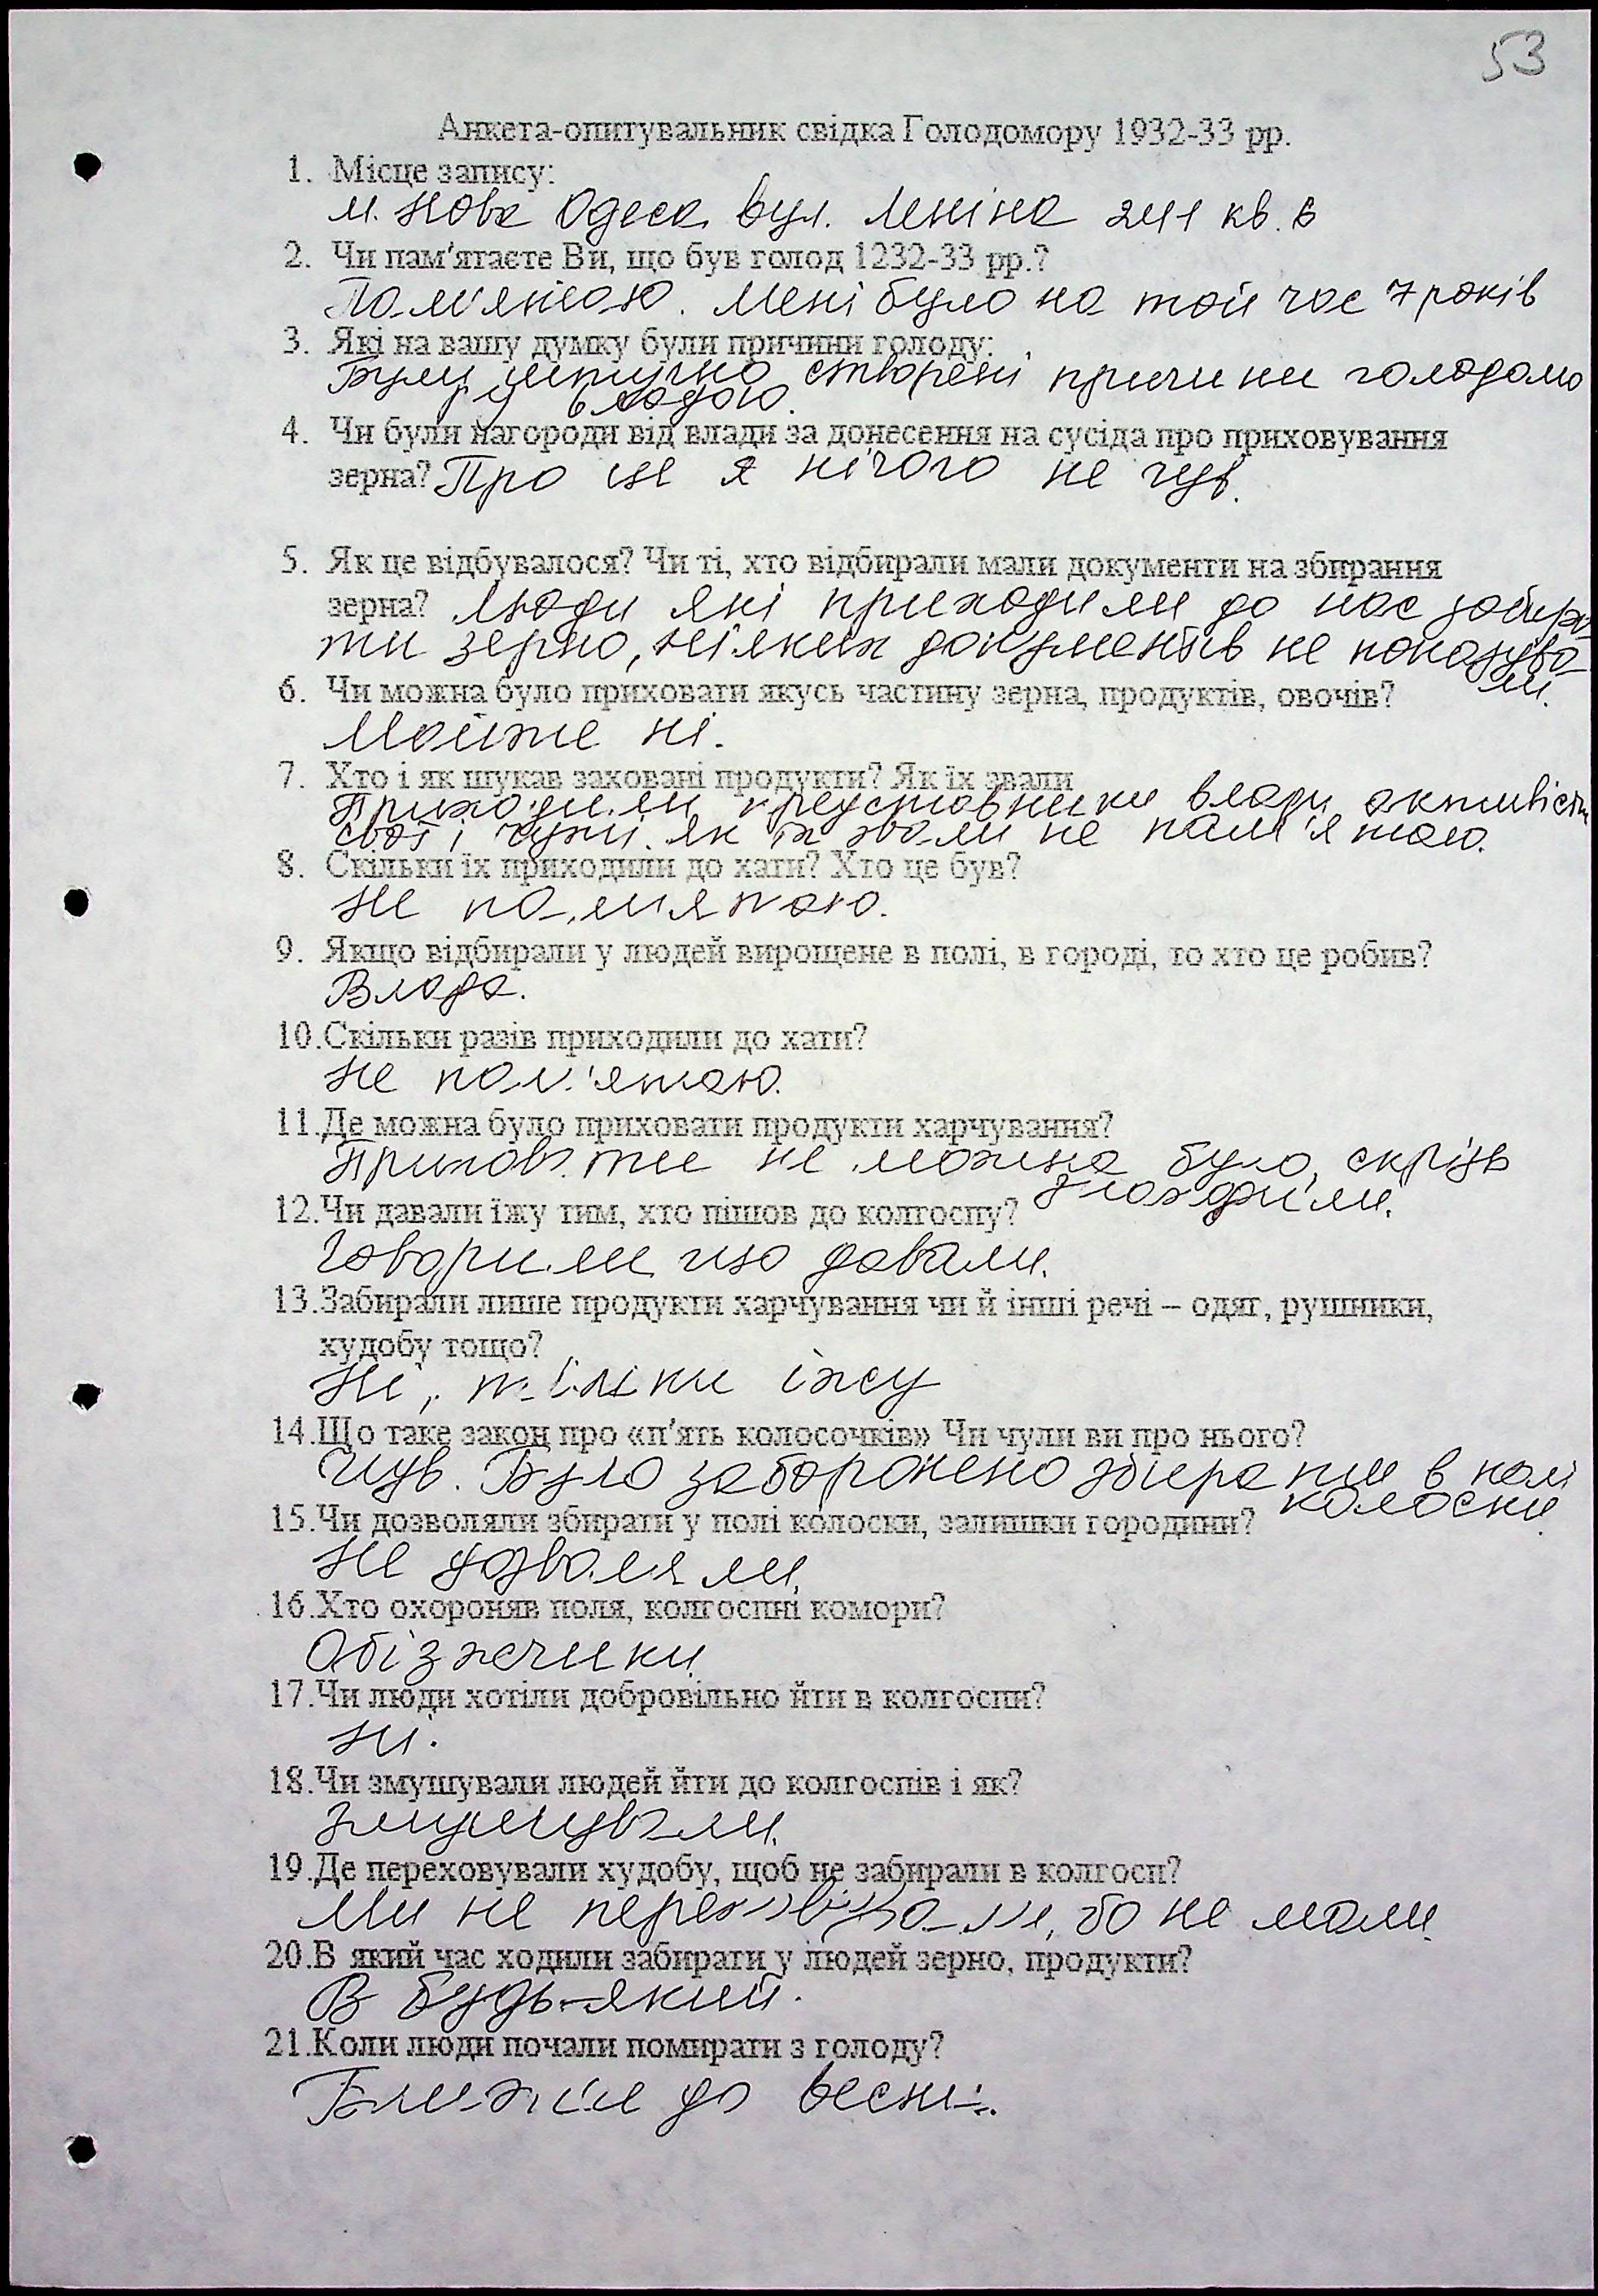 53
Анкета-опитувальник свідка Голодомору 1932-33 рр.
1. Місце запису:
м. Нова Одеса вул. Леніна 241 кв. 6
2. Чи пам'ятаєте Ви, що був голод 1232-33 рр.?
Пам'ятаю. Мені було на той час 7 років
3. Які на вашу думку були причини голоду:
Були штучно створені причини голодомо
ру владою.
4. Чи були нагороди від влади за донесення на сусіда про приховування
зерна? Про це я нічого не чув.
5. Як це відбувалося? Чи ті, хто відбирали мали документи на збирання
зерна? Люди які приходили до нас забира-
ти зерно, ніяких документів не показува-
ли.
6. Чи можна було приховати якусь частину зерна, продуктів, овочів?
Майже ні.
7. Хто і як шукав заховані продукти? Як їх звали
Приходили представники влади, активісти
свої і чужі. як їх звали не пам'ятаю.
8. Скільки їх приходили до хати? Хто це був?
Не пам'ятаю.
9. Якщо відбирали у людей вирощене в полі, в городі, то хто це робив?
Влада.
10.Скільки разів приходили до хати?
Не пам'ятаю.
11.Де можна було приховати продукти харчування?
Приховати не можна було, скрізь
знаходили.
12.Чи давали їжу тим, хто пішов до колгоспу?
Говорили що давали.
13.Забирали лише продукти харчування чи й інші речі – одяг, рушники,
худобу тощо?
Ні, тільки їжу
14.Що таке закон про «п'ять колосочків» Чи чули ви про нього?
Чув. Було заборонено збирати в полі
колоски.
15.Чи дозволяли збирати у полі колоски, залишки городини?
Не дозволяли.
16.Хто охороняв поля, колгоспні комори?
Обізжчики.
17.Чи люди хотіли добровільно йти в колгоспи?
Ні.
18.Чи змушували людей йти до колгоспів і як?
Змушували.
19.Де переховували худобу, щоб не забирали в колгосп?
Ми не переховували, бо не мали.
20.В який час ходили забирати у людей зерно, продукти?
В будь-який.
21.Коли люди почали помирати з голоду?
Ближче до весни.